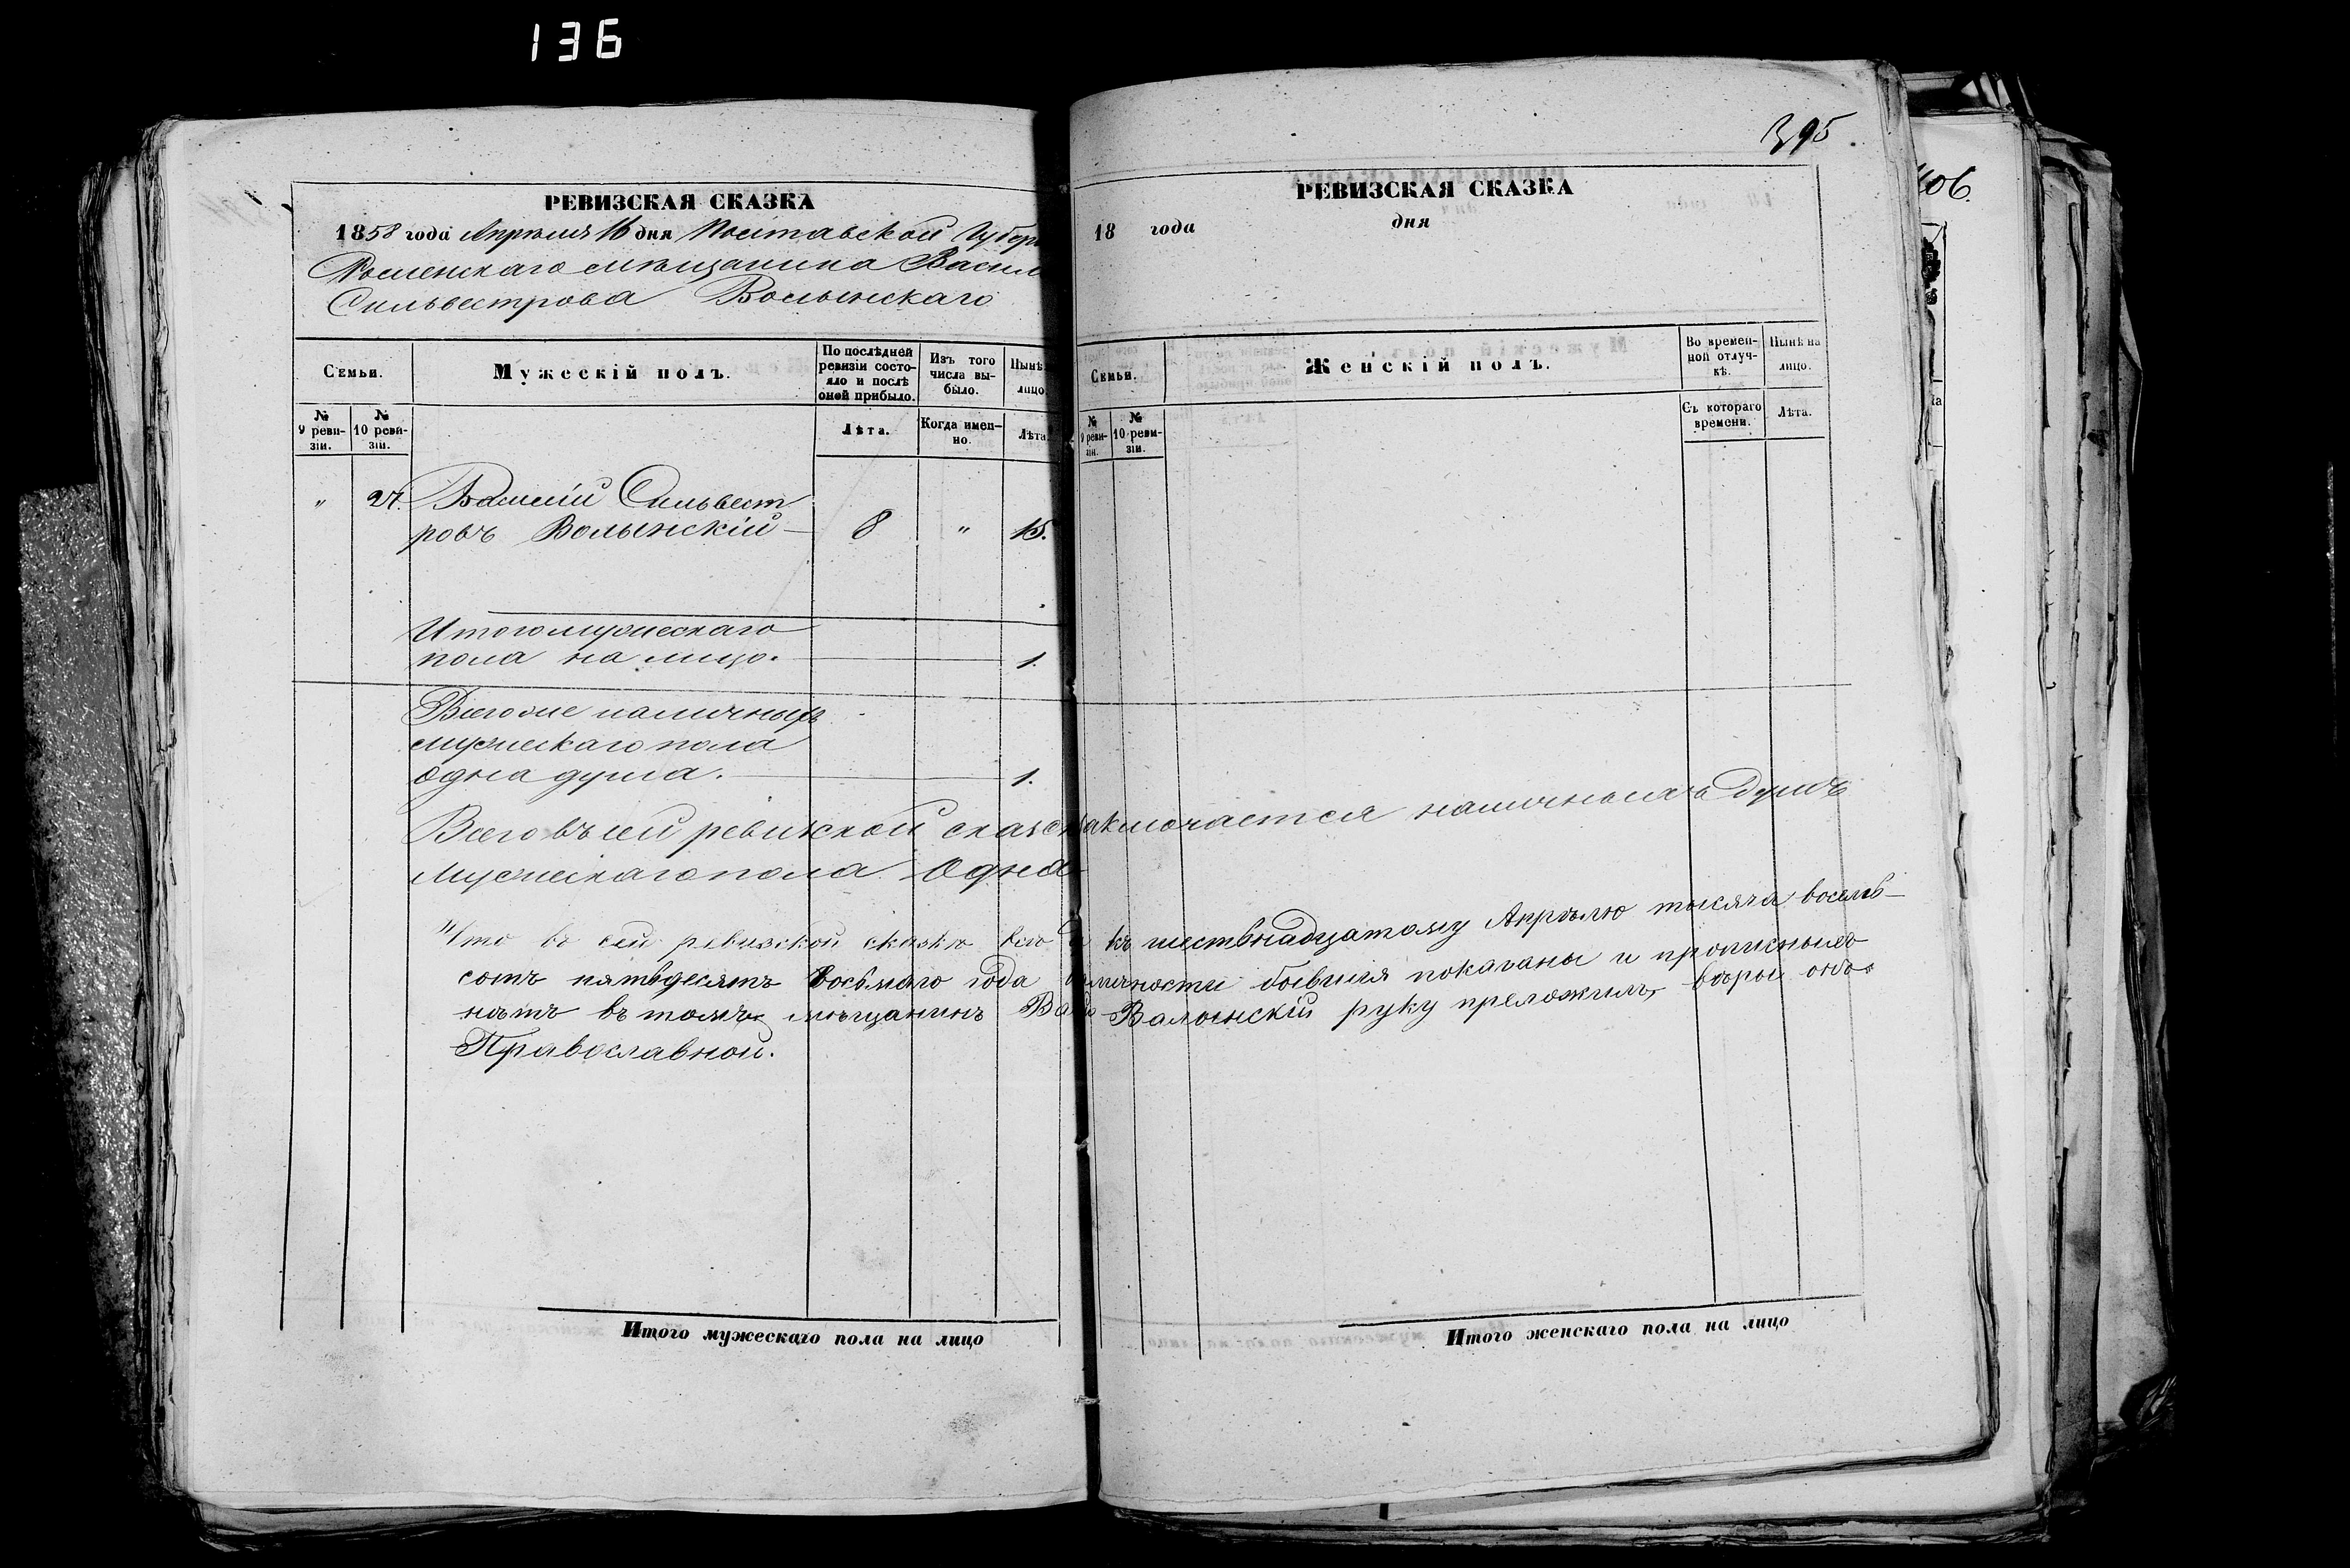 136
РЕВИЗСКАЯ СКАЗКА
1858 года Апреля 16 дня Полтавской Губер
Роменскаго мещанина Васил
Сильвестрова Волынскаго
Семьи.
Мужескій полъ.
По послѣдней ревизіи состояло и послѣ оной прибыло.
Изъ того числа выбыло.
Нынѣ лицо
№ 9 ревизіи.
№ 10 ревизіи.
Лѣта.
Когда именно.
Лѣта
" 27. Василій Сильвест
ровъ Волынскій — 8 " 15.
Итого мужескаго
пола на лицо. 1.
Всего же наличныхъ
мужескаго пола
одна душа. 1.
Всего въ сей ревизской сказк заключается наличныхъ душъ
Мужескаго пола Одна
Что въ сей ревизской сказкѣ всѣ къ шестьнадцатому Апрѣлю тысяча восемь—
сотъ пятьдесятъ восьмаго года наличности бывшія показаны и прописныхъ
нѣтъ въ томъ мѣщанинъ Ва Валынскій руку преложилъ, вѣры
Православной.
Итого мужескаго пола на лицо
395.
РЕВИЗСКАЯ СКАЗКА
18 года дня
Семьи.
Женскій полъ.
Во временной отлучкѣ.
Нынѣ на лицо.
№ 9 ревизіи.
№ 10 ревизіи.
Съ котораго времени.
Лѣта.
Итого женскаго пола на лицо
406.